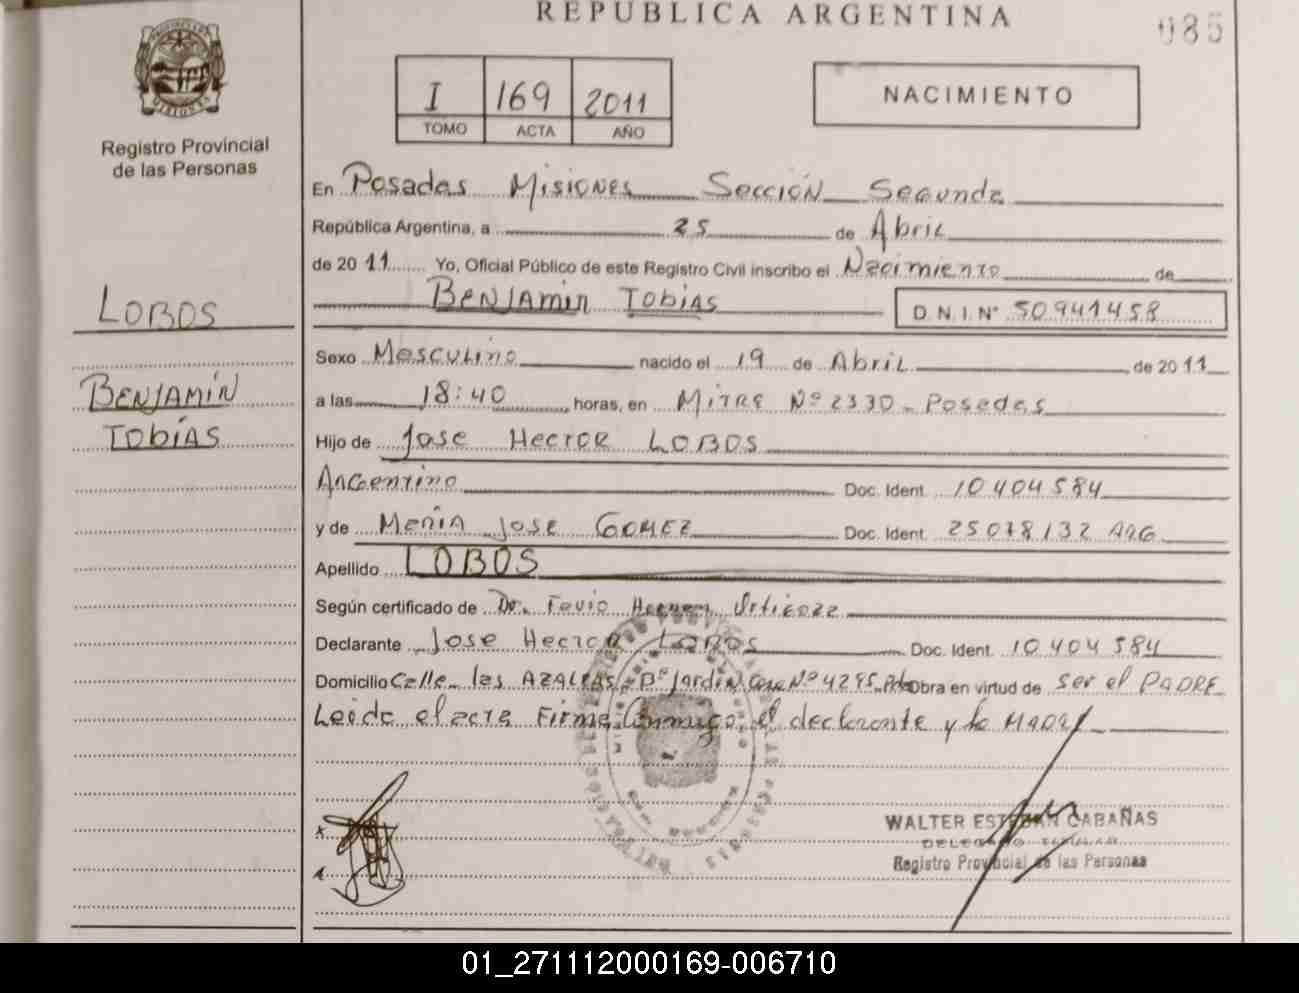 REPUBLICA ARGENTINA
085
PROVINCIA DE MISIONES
Registro Provincial
de las Personas
I 169 2011
TOMO ACTA AÑO
NACIMIENTO
En Posadas Misiones Sección Segunda
República Argentina, a 25 de Abril
de 2011 Yo, Oficial Público de este Registro Civil inscribo el Nacimiento de
BENJAMIN TOBIAS D.N.I. N° 50941458
LOBOS
BENJAMÍN
TOBÍAS
Sexo Masculino nacido el 19 de Abril de 2011
a las 18:40 horas, en MITRE Nº 2330 - Posadas
Hijo de Jose Hector LOBOS
Argentino Doc. Ident. 10404584
y de María Jose GOMEZ Doc. Ident. 25078132 ARG
Apellido LOBOS
Según certificado de Dr.
Declarante Jose Hector LOBOS Doc. Ident. 10404584
Domicilio Calle las AZALEAS Bº Jardín Casa Nº 4295 Pdas Obra en virtud de ser el PADRE
Leida el acta Firma Conmigo el declarante y la MADRE
WALTER ESTEBAN CABAÑAS
DELEGADO TITULAR
Registro Provincial de las Personas
01_271112000169-006710